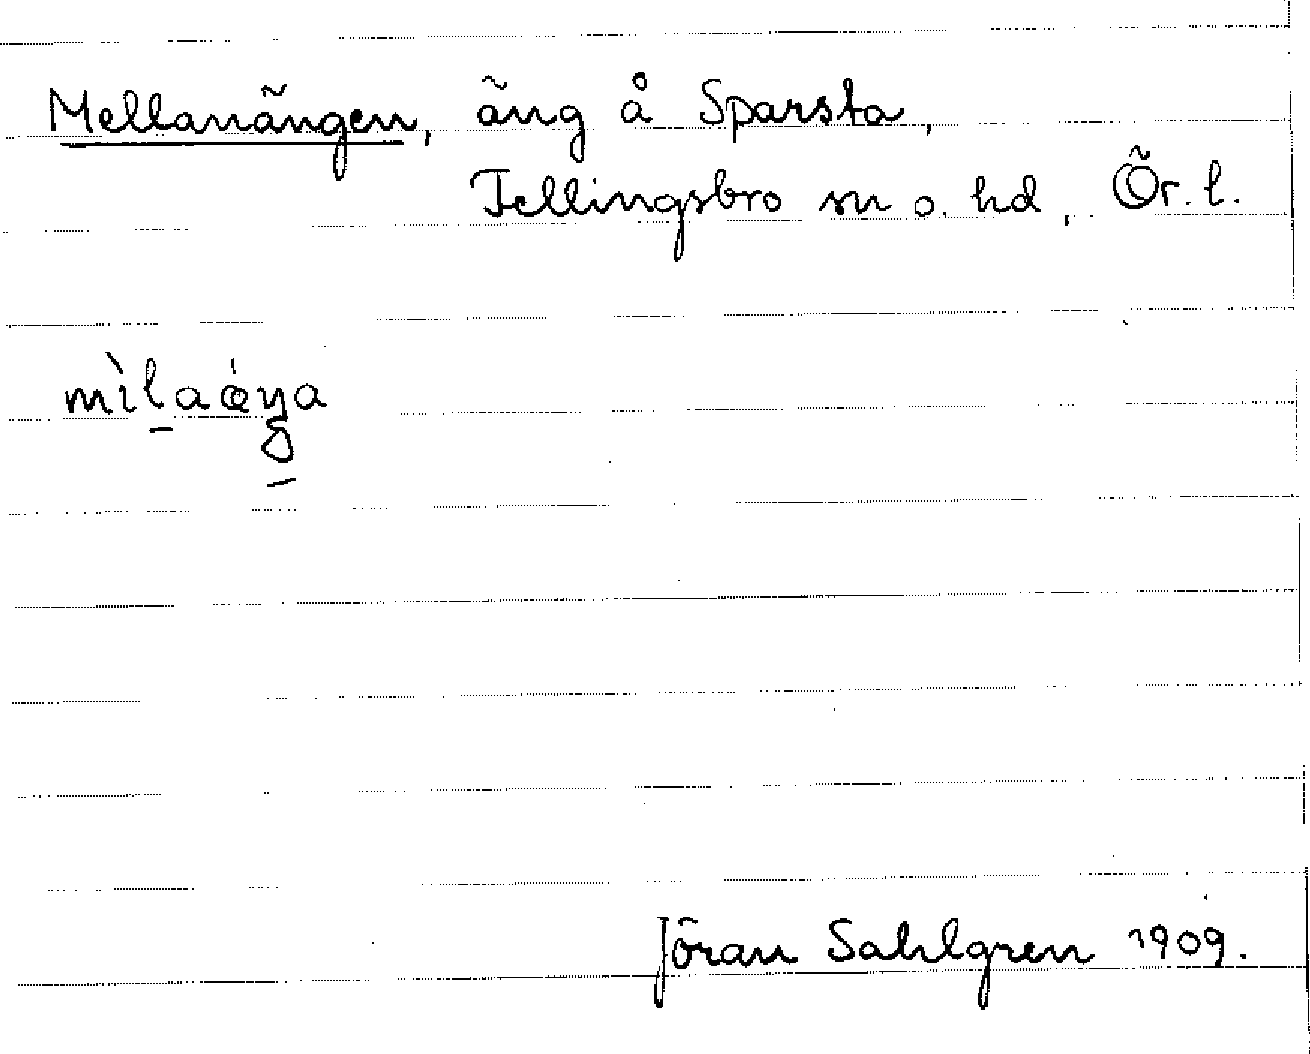 Mellanängen, äng å Sparsta,
Fellingsbro sn o. hd, Ör. l.
mìlaǻŋa
Jöran Sahlgren 1909.